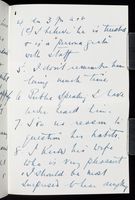 (c) I believe he is trusted
or is a "persona grata"
with staff
5. I don't remember him
losing much time
6. Public Speaker, I have
never heard him.
7. See no reason to
question his habits,
8. I know his wife
who is very pleasant
I should be most
surprised to hear anything